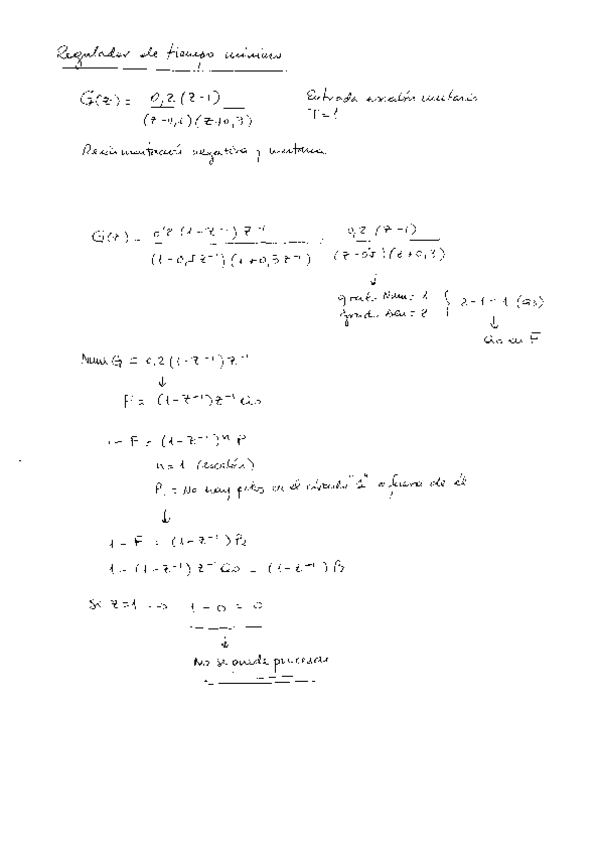 Regulador de tiempo mínimo
G(z) = 0,2 (z-1) / (z-0,5)(z+0,3) Entrada escalón unitario
T=1
Realimentación negativa y unitaria
G(z) = 0,2 (1-z⁻¹) z⁻¹ / (1-0,5z⁻¹)(1+0,3z⁻¹) = 0,2 (z-1) / (z-0,5)(z+0,3)
↓
grad. Num = 1
grad. Den = 2 } 2-1=1 (a₀)
↓
a₀ en F
Num G = 0,2 (1-z⁻¹) z⁻¹
↓
F = (1-z⁻¹) z⁻¹ a₀
1-F = (1-z⁻¹)ⁿ P
n=1 (escalón)
P₁ = No hay polos en el círculo "1" o fuera de él
↓
1-F = (1-z⁻¹) P₂
1-(1-z⁻¹) z⁻¹ a₀ = (1-z⁻¹) P₂
Si z=1 → 1-0 = 0
↓
No se puede procesar